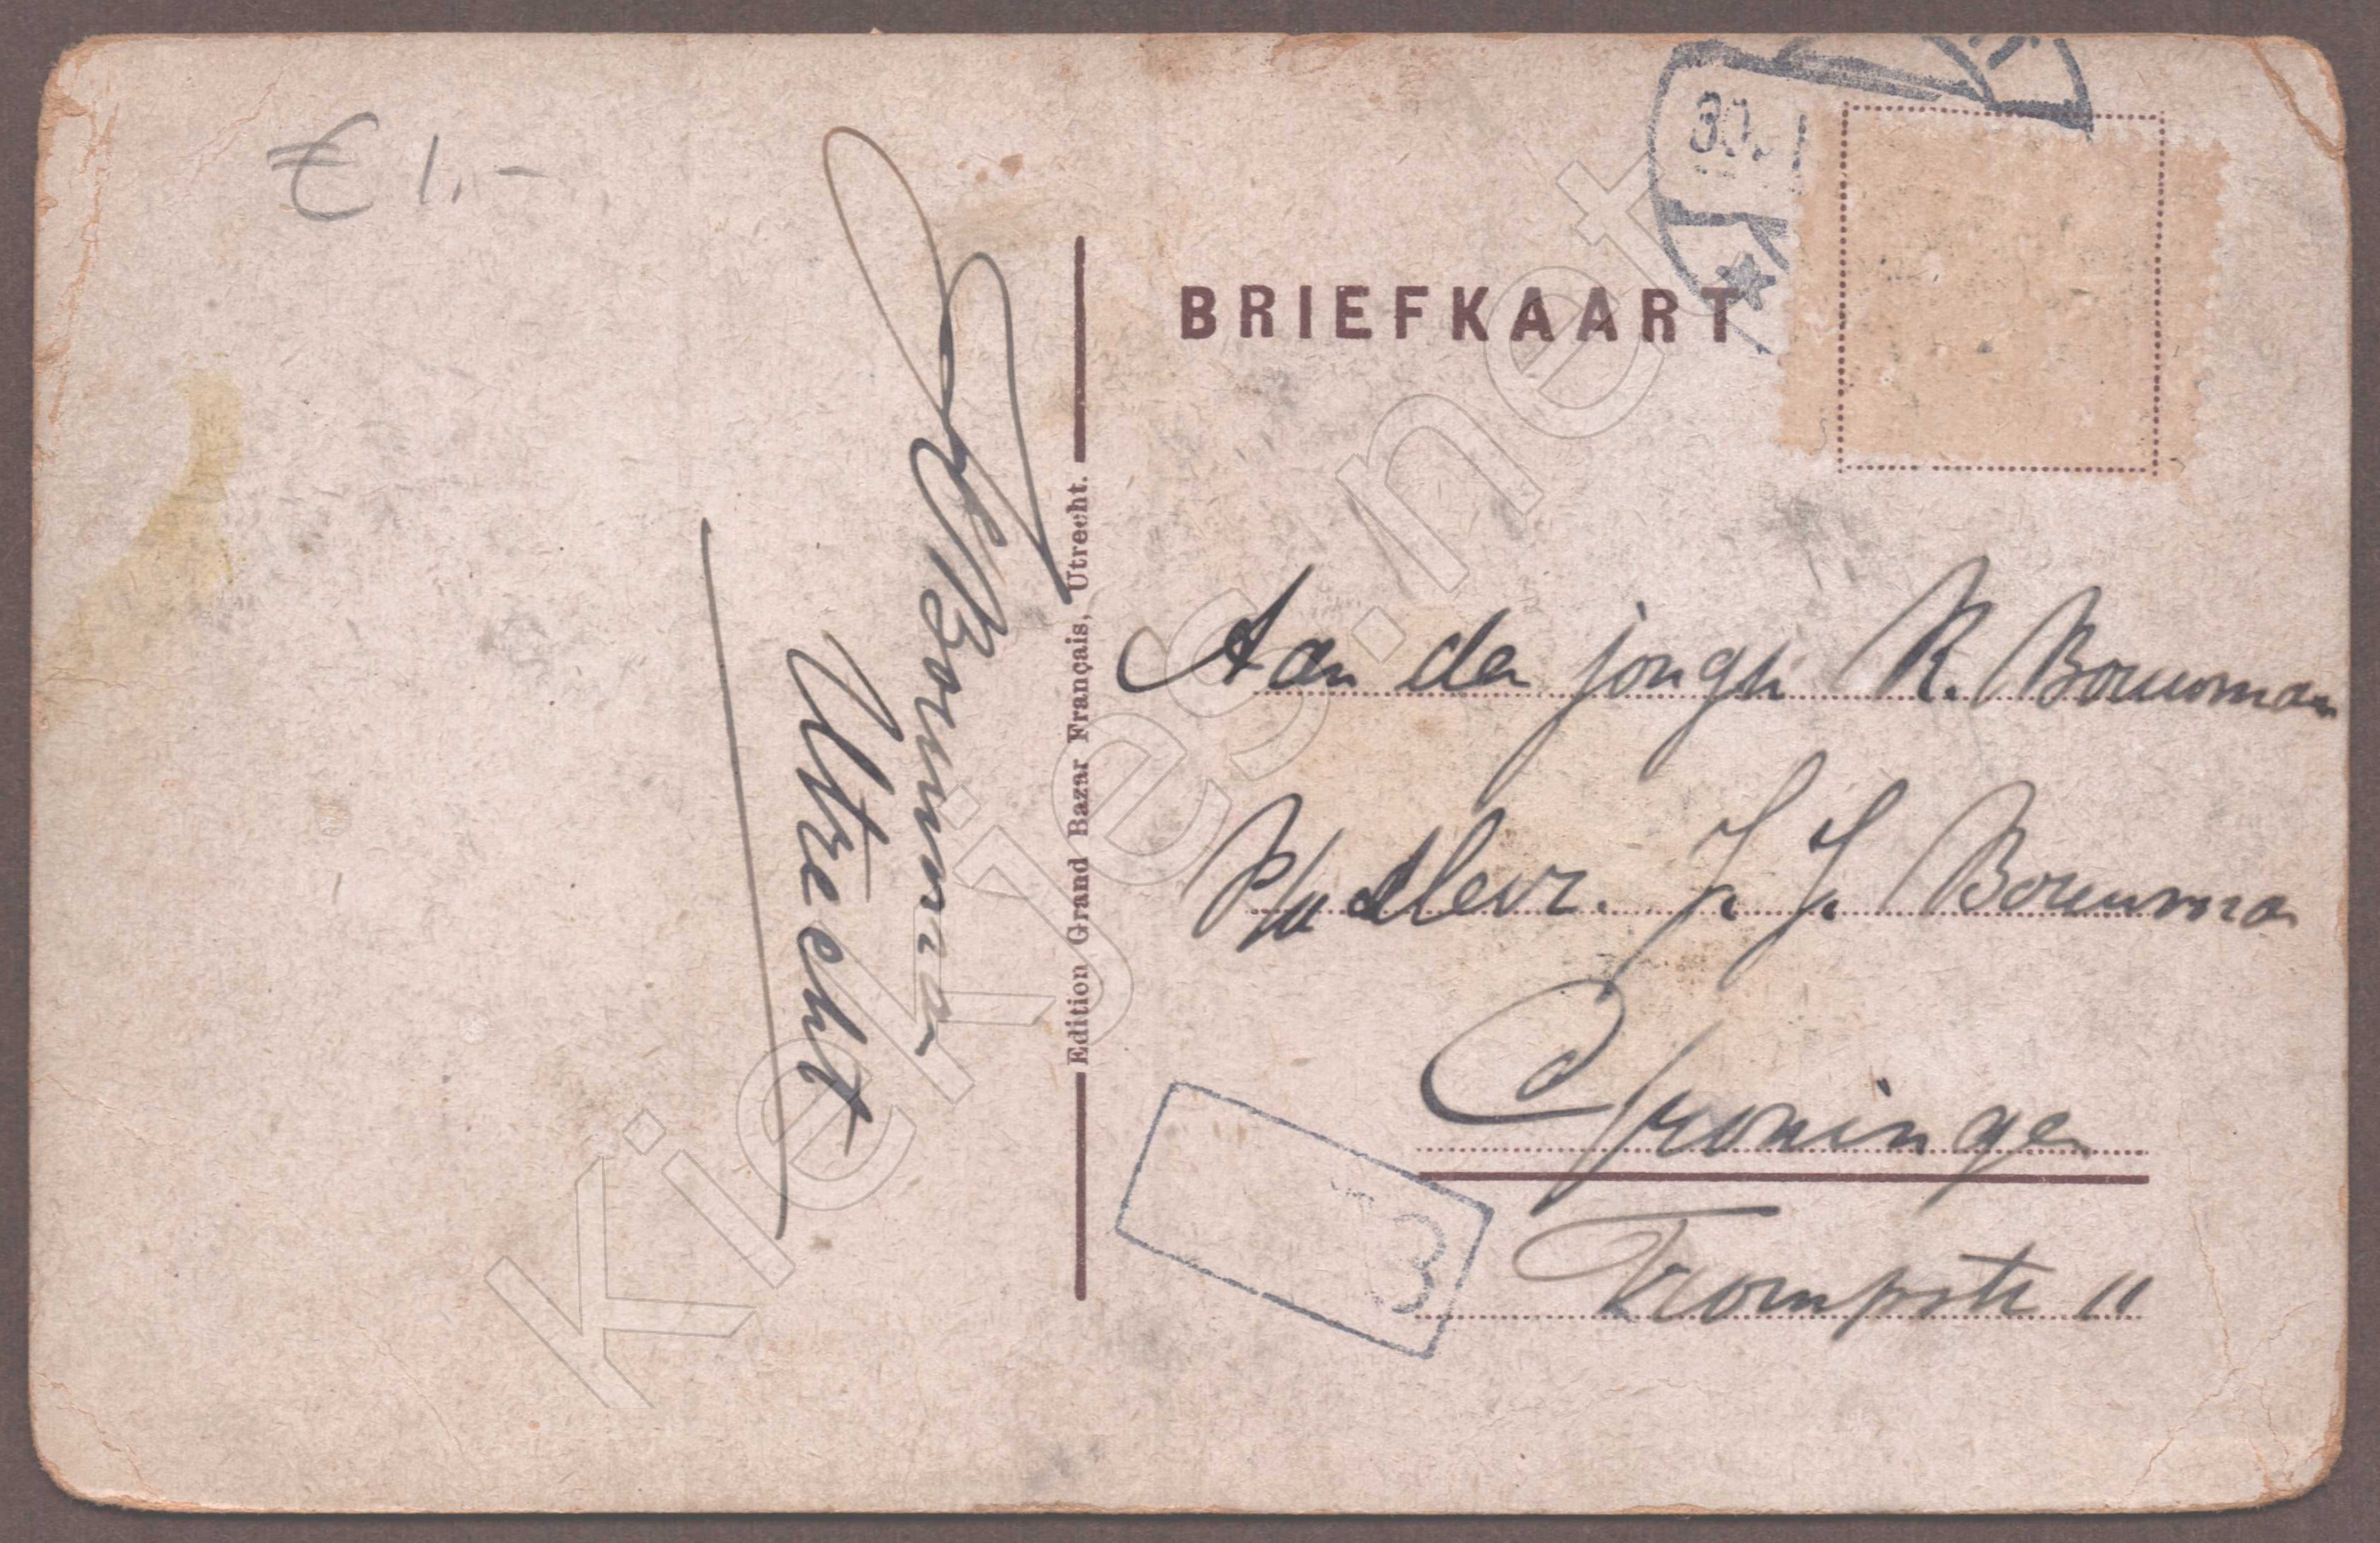 € 1.-
BRIEFKAART
30.
Edition Grand Bazar Français, Utrecht.
Bouwma
Utrecht
Aan de jonge R. Bouwman
P/a J. J. Bouwma
Groningen
Trompstr 11
3
Kiekjes.net